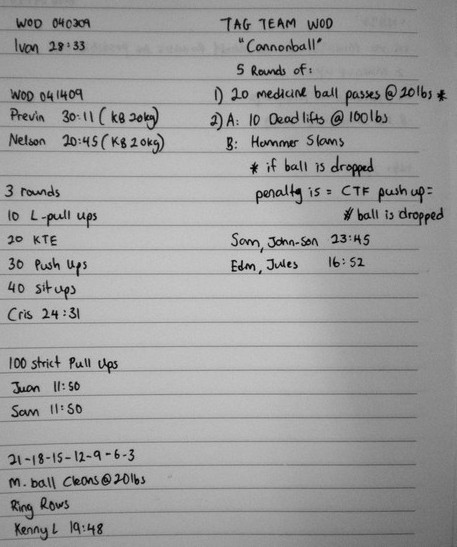 WOD 040309
Ivan 28:33
WOD 041409
Previn 30:11 (KB 20kg)
Nelson 20:45 (KB 20kg)
3 rounds
10 L-pull ups
20 KTE
30 Push Ups
40 sit ups
Cris 24:31
100 strict Pull Ups
Juan 11:50
Sam 11:50
21-18-15-12-9-6-3
M. ball Cleans @ 20lbs
Ring Rows
Kenny L 19:48
TAG TEAM WOD
"Cannonball"
5 Rounds of:
1) 20 medicine ball passes @ 20lbs *
2) A: 10 Deadlifts @ 100lbs
B: Hammer Slams
* if ball is dropped
penalty is = CTF push up =
# ball is dropped
Sam, John-Son 23:45
Edm, Jules 16:52